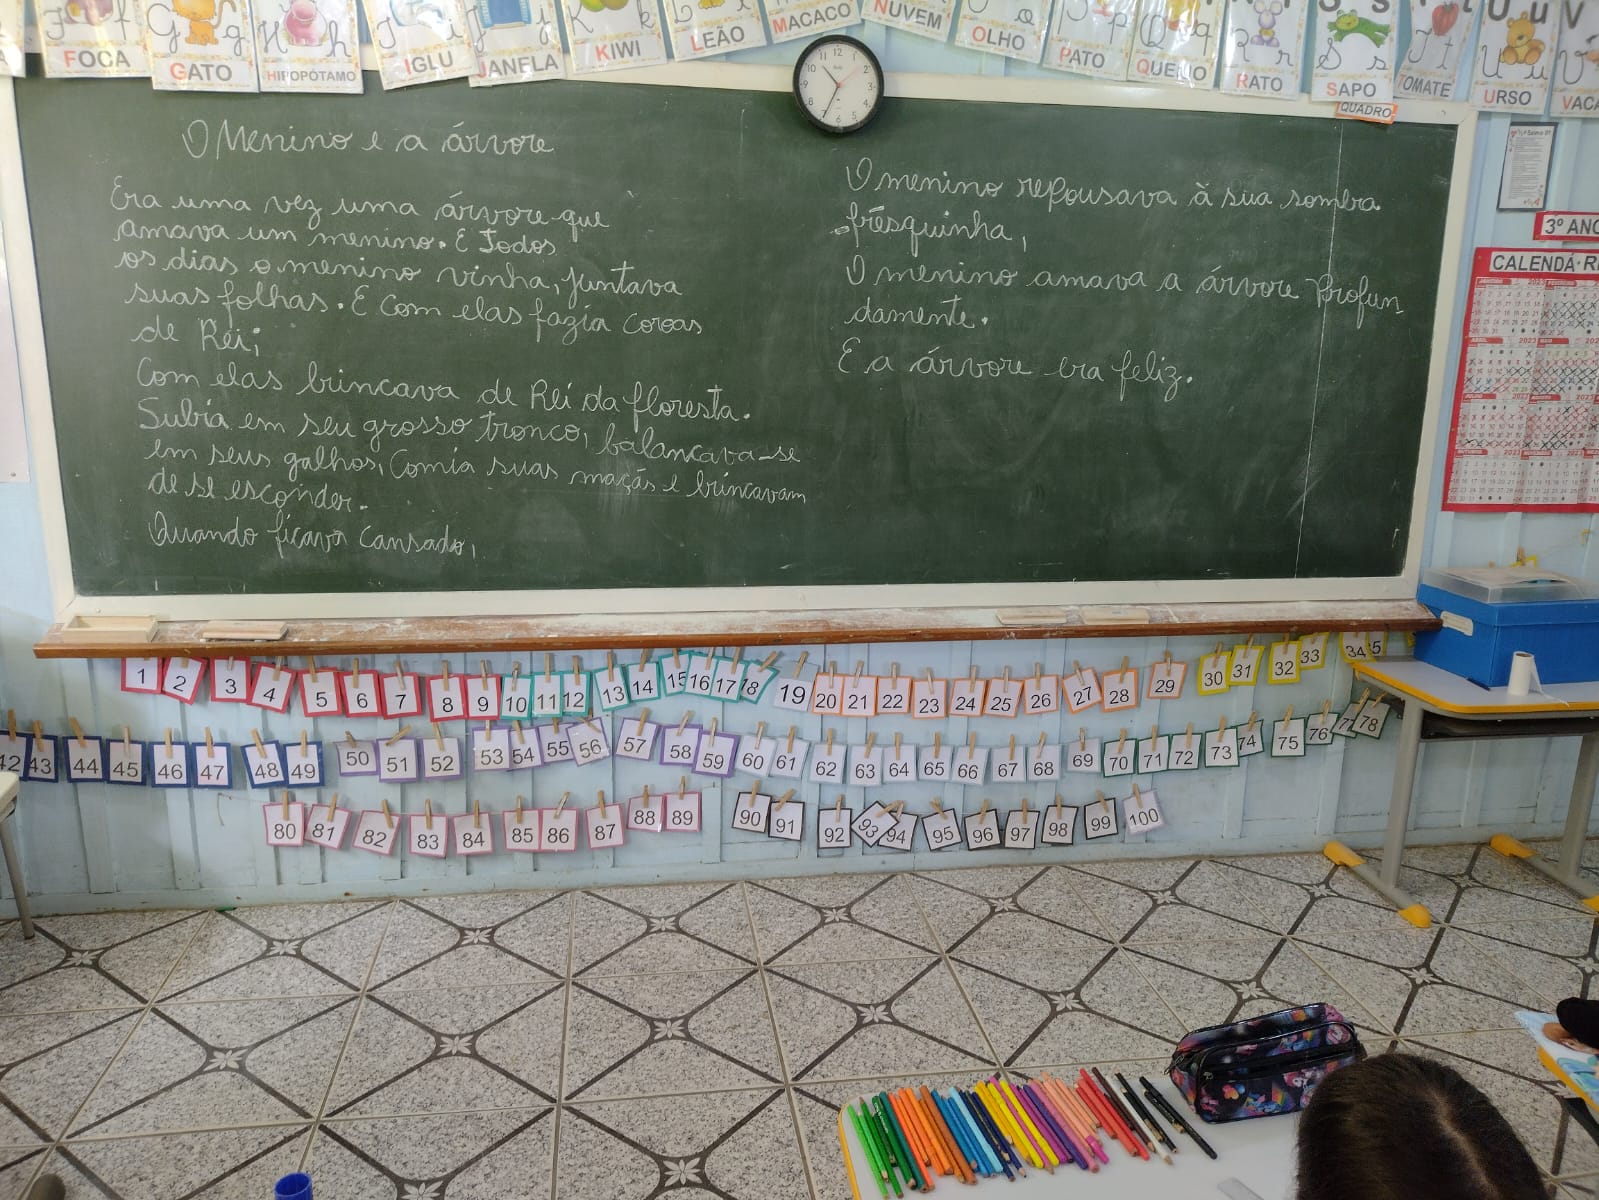 FOCA
GATO
HIPOPÓTAMO
IGLU
JANELA
KIWI
LEÃO
MACACO
NUVEM
OLHO
PATO
QUEIJO
RATO
SAPO
TOMATE
URSO
VACA
QUADRO
O Menino e a árvore
Era uma vez uma árvore que
amava um menino. E Todos
os dias o menino vinha, juntava
suas folhas. E com elas fazia coroas
de Rei;
Com elas brincava de Rei da floresta.
Subia em seu grosso tronco, balancava-se
em seus galhos, Comia suas maçãs e brincavam
de se esconder.
Quando ficava cansado,
O menino repousava à sua sombra
frésquinha,
O menino amava a árvore Profun
damente.
E a árvore era feliz.
3º ANO
CALENDÁRI
1 2 3 4 5 6 7 8 9 10 11 12 13 14 15 16 17 18 19 20 21 22 23 24 25 26 27 28 29 30 31 32 33 34 35
42 43 44 45 46 47 48 49 50 51 52 53 54 55 56 57 58 59 60 61 62 63 64 65 66 67 68 69 70 71 72 73 74 75 76 77 78
80 81 82 83 84 85 86 87 88 89 90 91 92 93 94 95 96 97 98 99 100